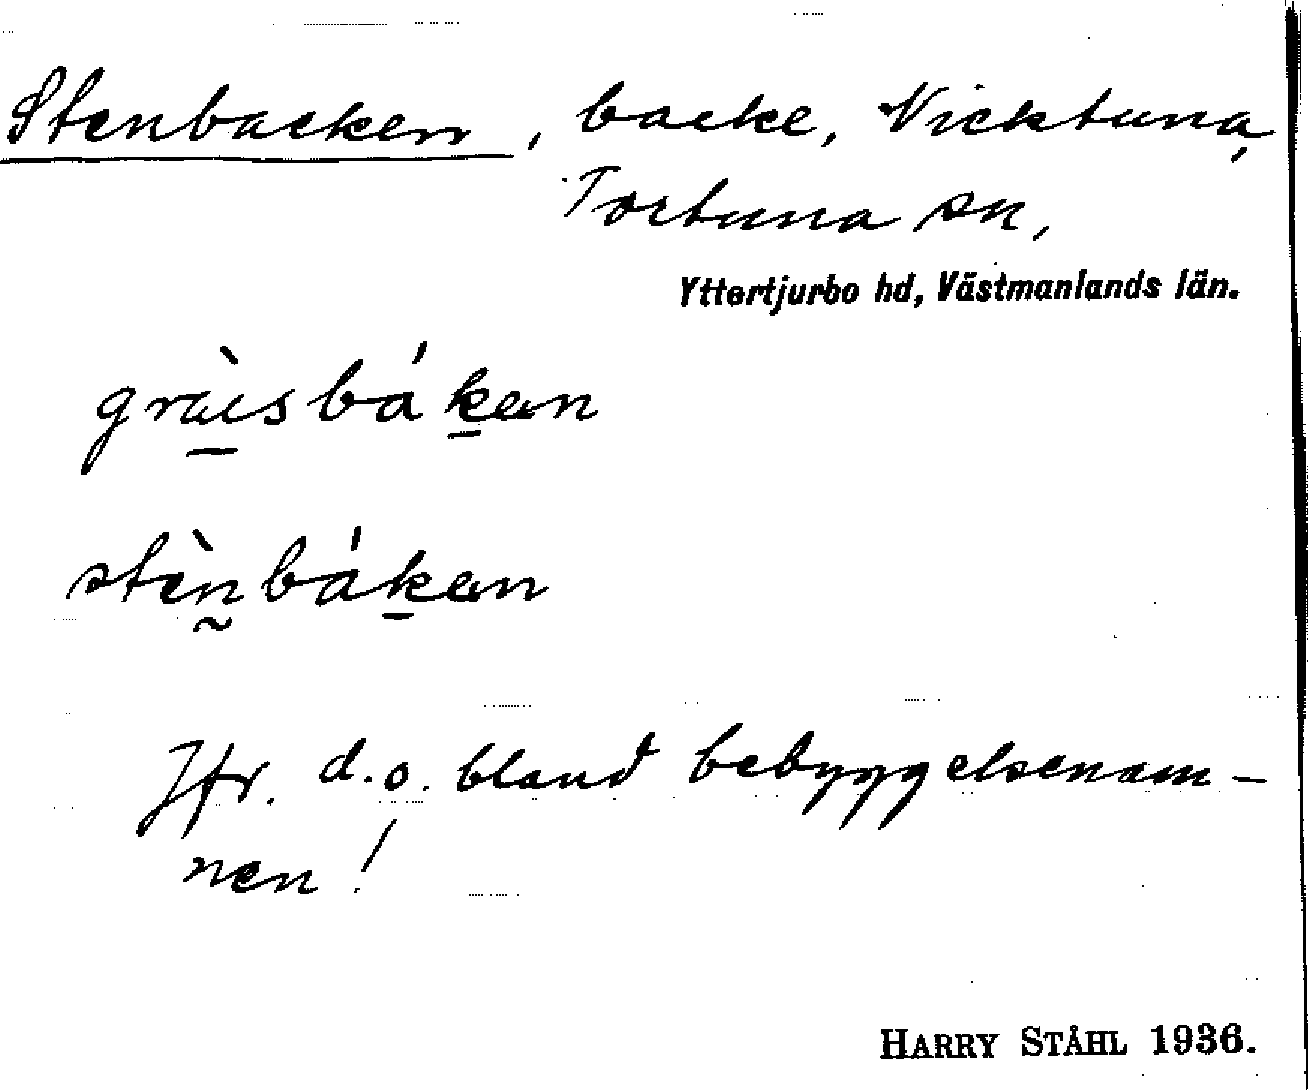 Stenbacken, backe, Nicktuna,
Tortuna sn,
Yttertjurbo hd, Västmanlands län.
gràsbákan
stènbákan
Jfr. d.o. bland bebyggelsenam-
nen!
HARRY STÅHL 1936.